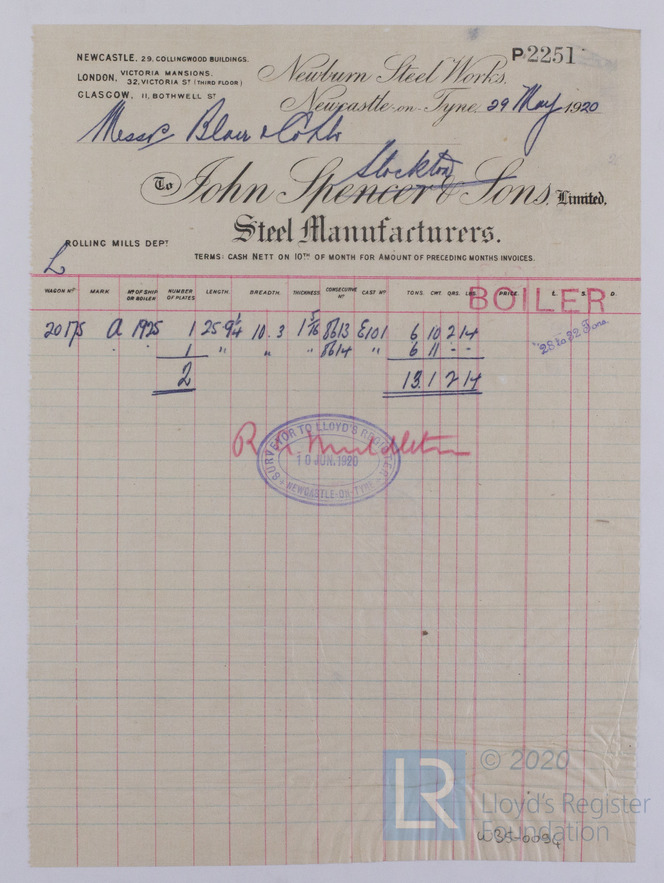 P 2251
NEWCASTLE, 29, COLLINGWOOD BUILDINGS.
LONDON, VICTORIA MANSIONS, 32, VICTORIA ST (THIRD FLOOR)
GLASGOW, 11, BOTHWELL ST
Newburn Steel Works,
Newcastle-on-Tyne, 29 May 1920
Messrs Blair & Co Ltd
Stockton
To John Spencer & Sons, Limited,
Steel Manufacturers.
L
ROLLING MILLS DEPT
TERMS: CASH NETT ON 10TH OF MONTH FOR AMOUNT OF PRECEDING MONTHS INVOICES.
WAGON No MARK No OF SHIP OR BOILER NUMBER OF PLATES LENGTH. BREADTH. THICKNESS CONSECUTIVE No CAST No TONS. CWT. QRS. LBS. PRICE. £. S. D.
BOILER
20175 A 1925 1 25 9¼ 10. 3 1 5/16 8613 E101 6 10 2 14
28 to 32 Tons.
" " 1 " " " 8614 " 6 11 - -
2 13. 1 2 14
R. Middleton
SURVEYOR TO LLOYD'S REGISTER
10 JUN. 1920
NEWCASTLE-ON-TYNE
LR
© 2020
Lloyd's Register
Foundation
W35-0094